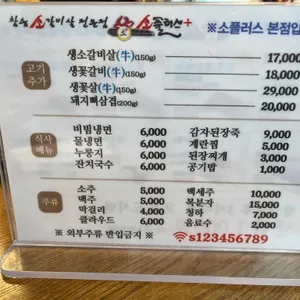 참숯 소갈비살 전문점 소플러스+ ※소플러스 본점입
고기 추가
생소갈비살(牛)(150g) 17,000
생꽃갈비(牛)(150g) 18,000
생꽃살(牛)(150g) 29,000
돼지뼈삼겹(200g) 20,000
식사 메뉴
비빔냉면 6,000 감자된장죽 9,000
물냉면 6,000 계란찜 5,000
누룽지 6,000 된장찌개 3,000
잔치국수 6,000 공기밥 1,000
주류
소주 5,000 백세주 10,000
맥주 5,000 복분자 15,000
막걸리 4,000 청하 7,000
클라우드 6,000 음료수 2,000
※ 외부주류 반입금지 ※ s123456789